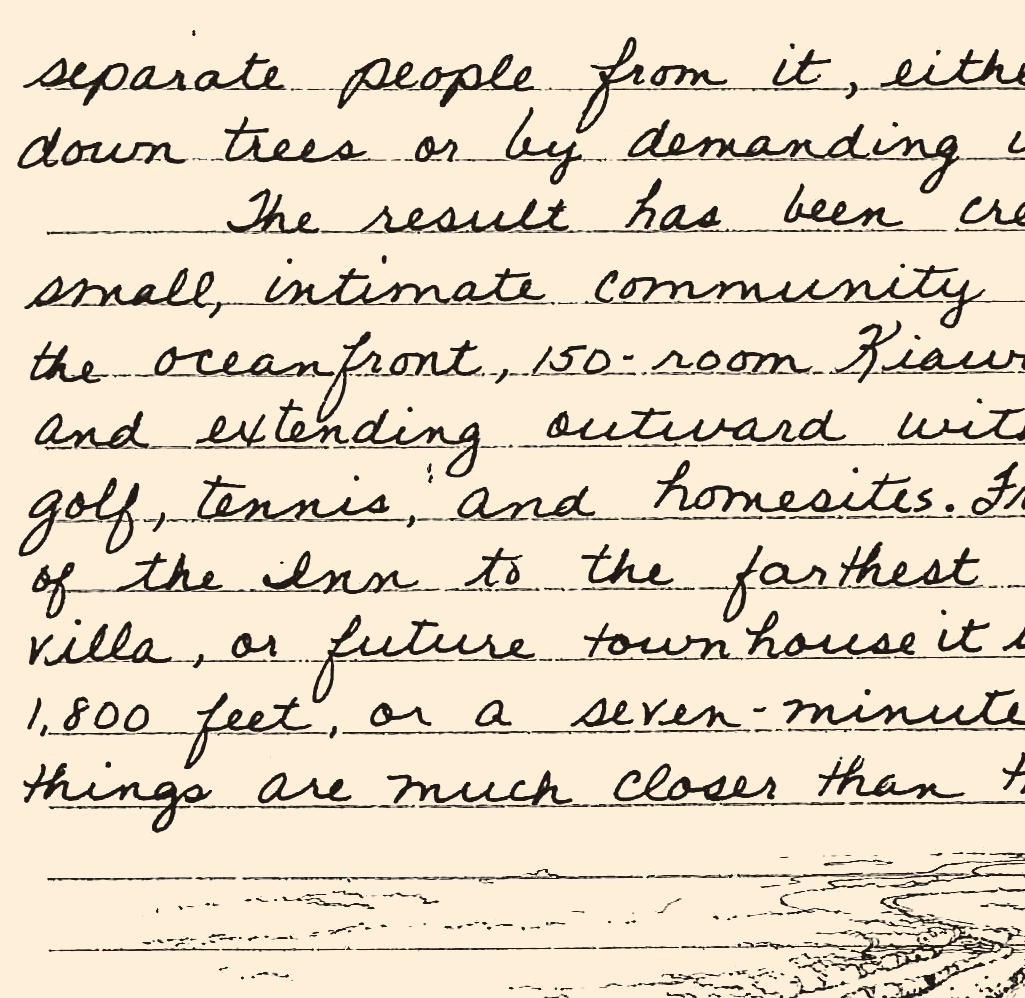 separate people from it, eithe
down trees or by demanding
The result has been cre
small, intimate community
the oceanfront, 150-room Kiaw
and extending outward with
golf, tennis, and homesites. Fr
of the Inn to the farthest
villa, or future townhouse it
1,800 feet, or a seven-minute
things are much closer than